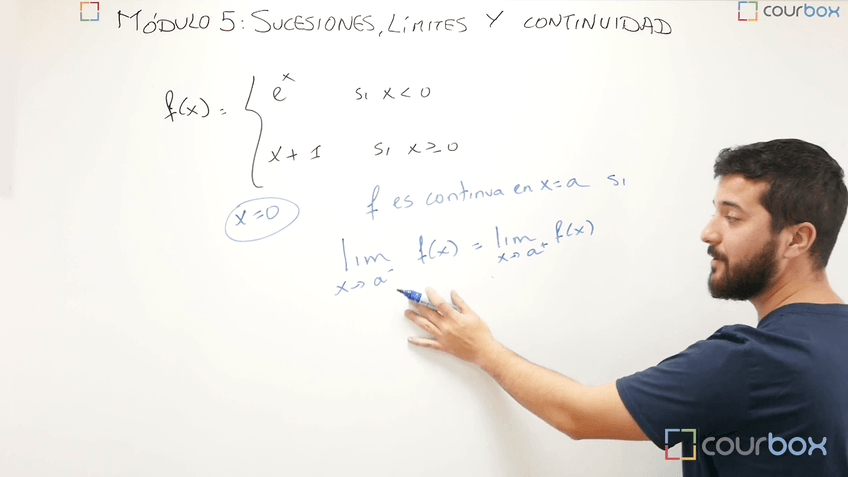 MÓDULO 5: SUCESIONES, LÍMITES Y CONTINUIDAD
courbox
f(x) = { e^x si x < 0
x + 1 si x ≥ 0
x = 0
f es continua en x = a si
lim x→a⁻ f(x) = lim x→a⁺ f(x)
courbox